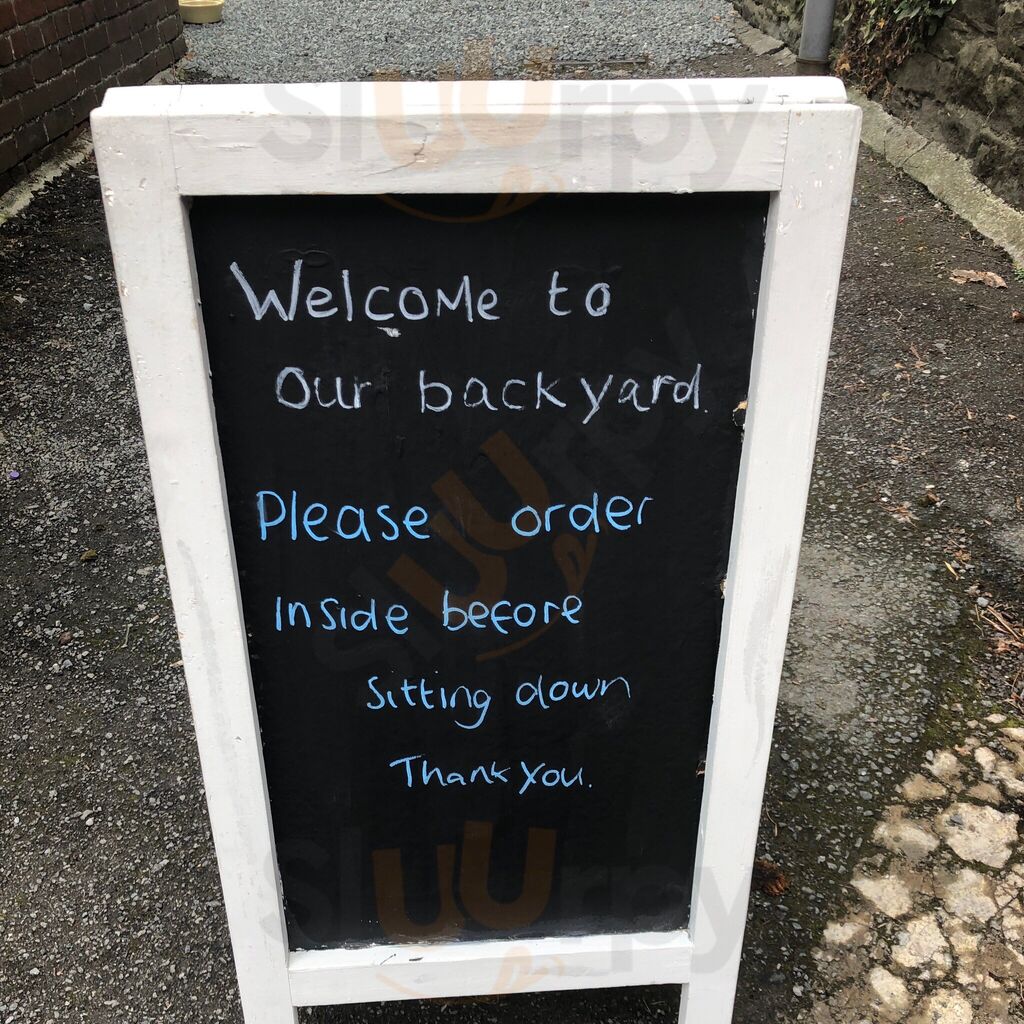 Welcome to
Our backyard.
Please order
Inside before
Sitting down
Thank you.
sluurpy
sluurpy
sluurpy